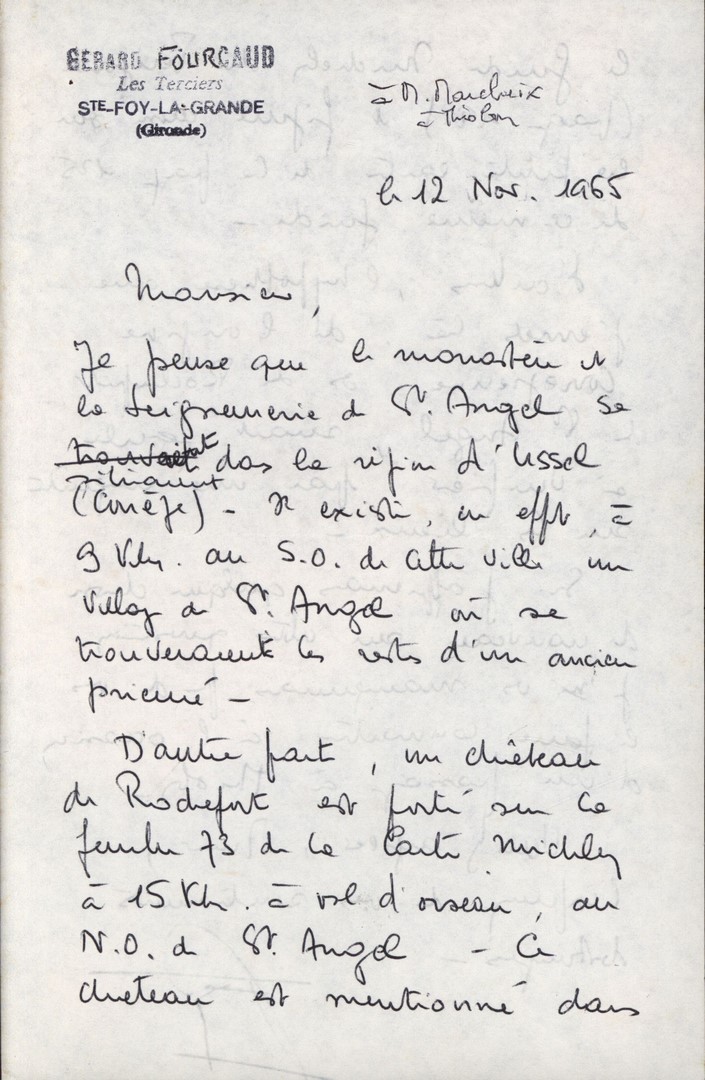 GERARD FOURCAUD
Les Terciers
STE-FOY-LA-GRANDE
(Gironde)
à M. Marcheix
à Thiolon
le 12 Nov. 1965
Monsieur,
Je pense que le monastère et
la Seigneurie de St. Angel se
trouvaient dans la région d'Ussel
situaient
(Corrèze) - Il existe, en effet, à
9 Klm. au S.O. de cette ville un
village de St. Angel où se
trouveraient les restes d'un ancien
prieuré -
D'autre part, un château
de Rochefort est porté sur la
feuille 73 de la Carte Michelin
à 15 Klm. à vol d'oiseau, au
N.O. de St. Angel - Ce
château est mentionné dans